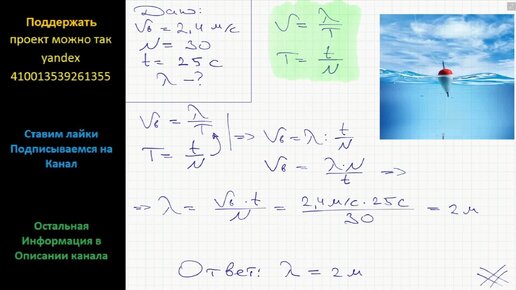 Поддержать
проект можно так
yandex
410013539261355
Ставим лайки
Подписываемся на
Канал
Остальная
Информация в
Описании канала
Дано:
Vв = 2,4 м/с
N = 30
t = 25 с
λ - ?
V = λ/T
T = t/N
Vв = λ/T
T = t/N
=> Vв = λ : t/N
Vв = λ·N/t =>
=> λ = Vв·t/N = 2,4 м/с · 25 с/30 = 2 м
Ответ: λ = 2 м